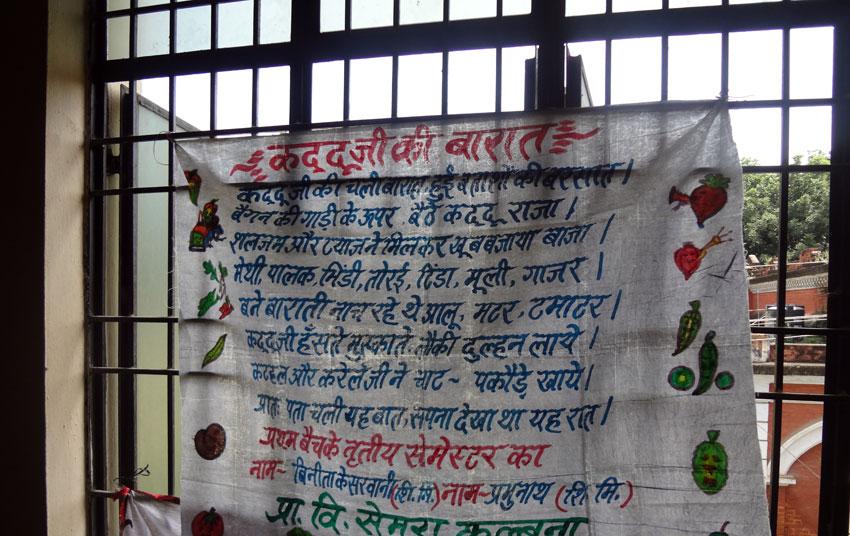 कद्दूजी की बारात
कद्दूजी की चली बारात, हुई बताशों की बरसात।
बैंगन की गाड़ी के ऊपर बैठे कद्दू राजा।
शलजम और प्याज ने मिलकर खूब बजाया बाजा।
मेथी, पालक, भिंडी, तोरई, टिंडा, मूली, गाजर।
बने बाराती नाच रहे थे आलू, मटर, टमाटर।
कद्दूजी हँसते मुस्काते लौकी दुल्हन लाये।
कटहल और करेले जी ने चाट - पकौड़े खाये।
प्रातः पता चली यह बात, सपना देखा था यह रात।
प्रथम बैच के तृतीय सेमेस्टर का
नाम- बिनीता केसरवानी (शि. मि.) नाम- प्रभुनाथ (शि. मि.)
प्रा. वि. सेमरा कल्बना